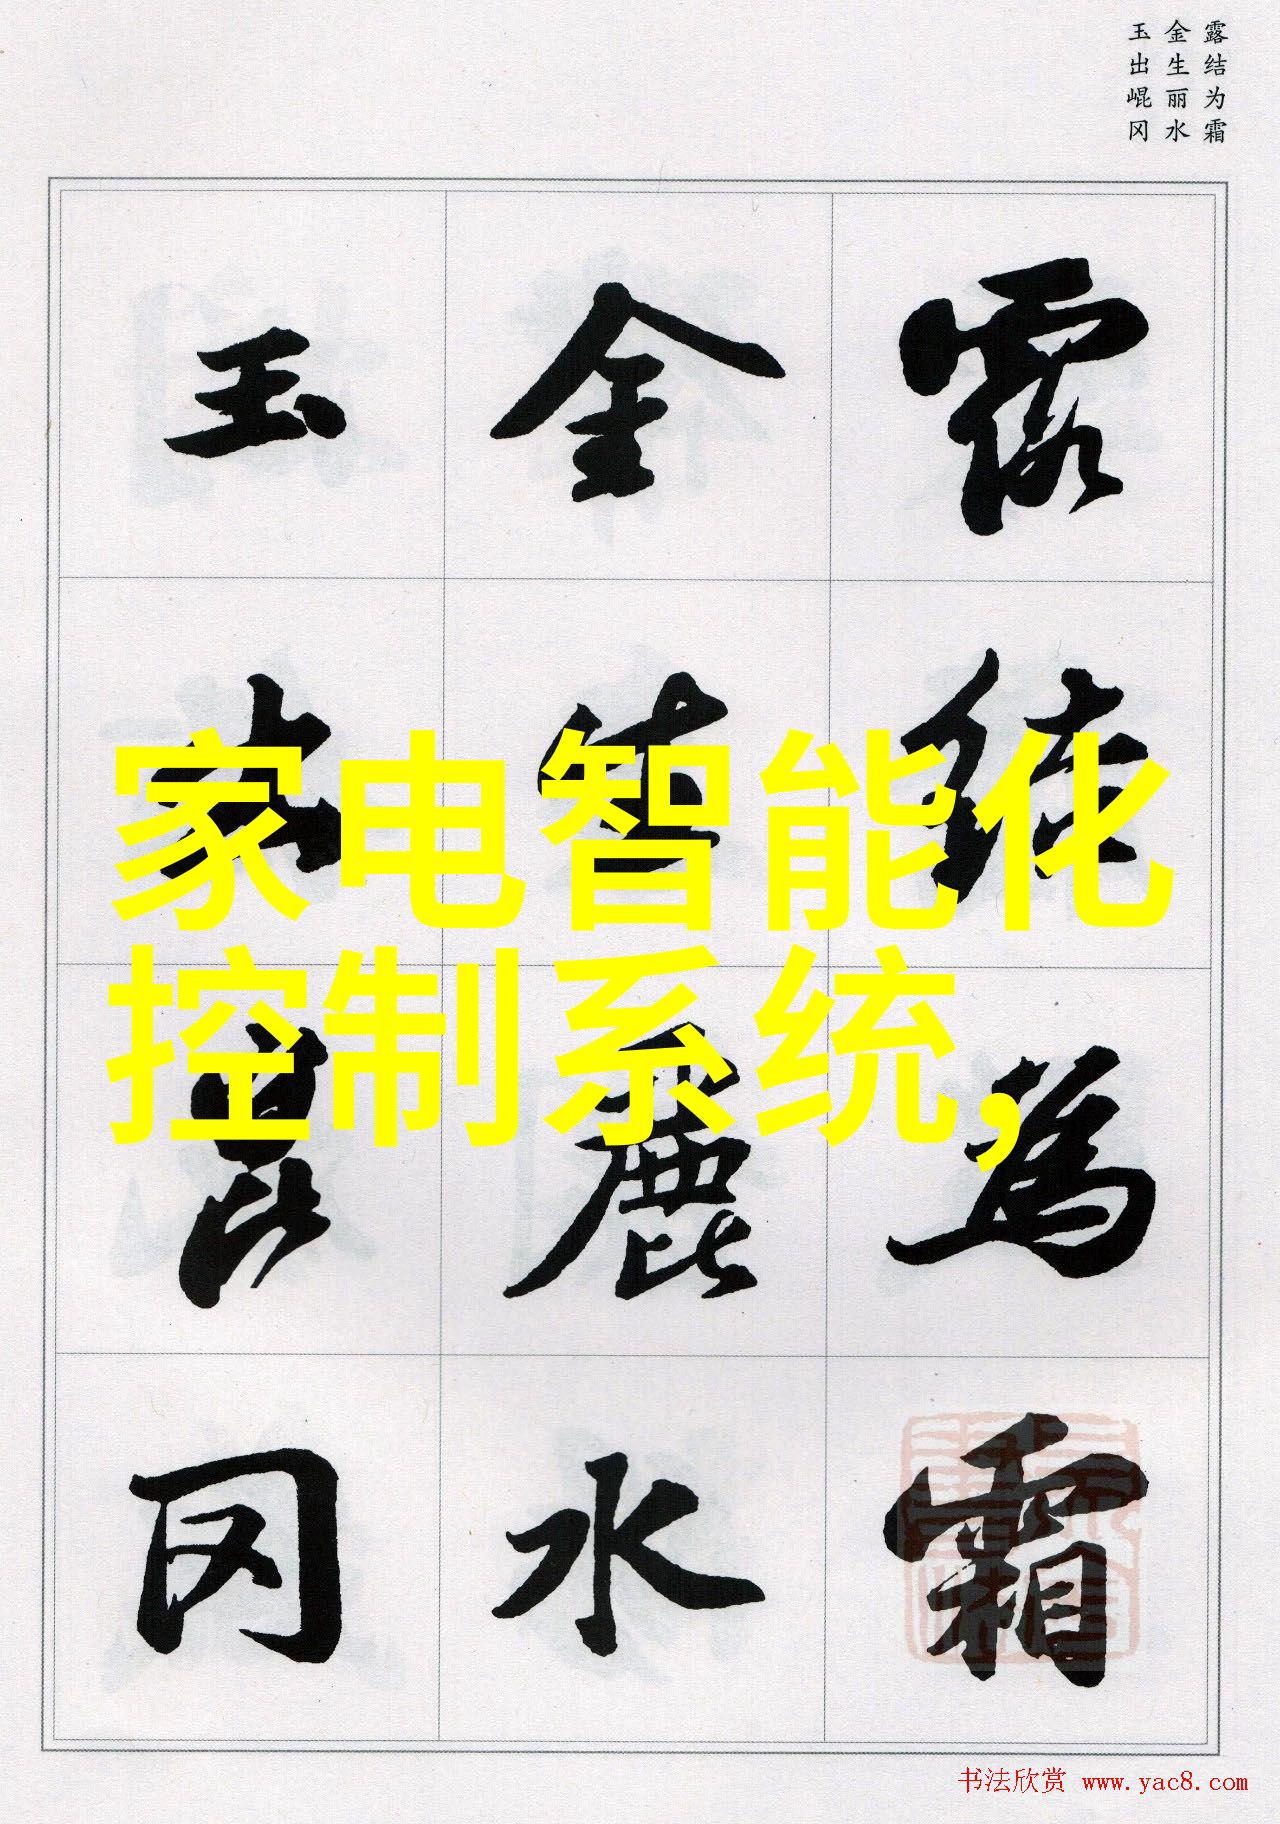 露结为霜
金生丽水
玉出崐冈
露结為霜
金生麗水
玉出崑冈
家电智能化
控制系统,
书法欣赏 www.yac8.com